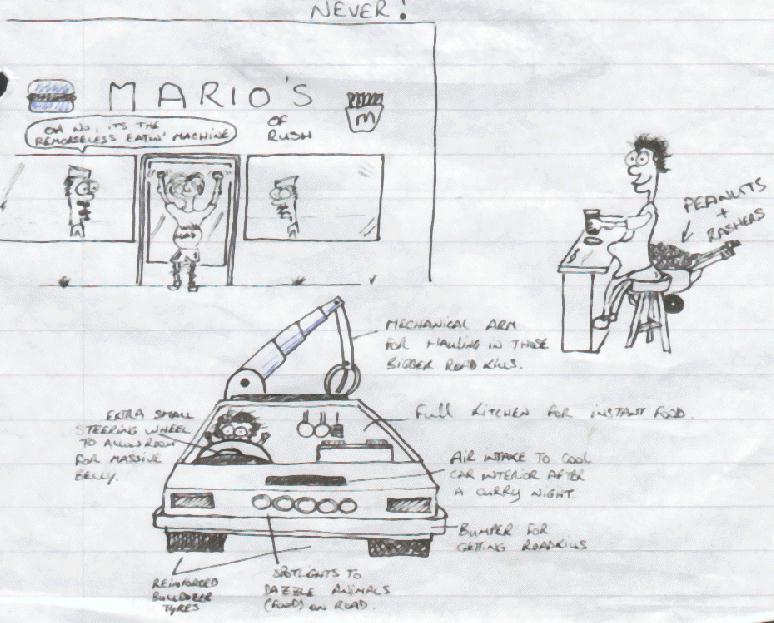 NEVER!
MARIO'S
OF
RUSH
M
OH NO, ITS THE
REMORSELESS EATIN' MACHINE
PEANUTS
+
RASHERS
MECHANICAL ARM
FOR HAULING IN THOSE
BIGGER ROAD KILLS.
EXTRA SMALL
STEERING WHEEL
TO ALLOW ROOM
FOR MASSIVE
BELLY.
FULL KITCHEN FOR INSTANT FOOD.
AIR INTAKE TO COOL
CAR INTERIOR AFTER
A CURRY NIGHT.
BUMPER FOR
GETTING ROADKILLS
REINFORCED
BULLDOZER
TYRES
SPOTLIGHTS TO
DAZZLE ANIMALS
(FOOD) ON ROAD.